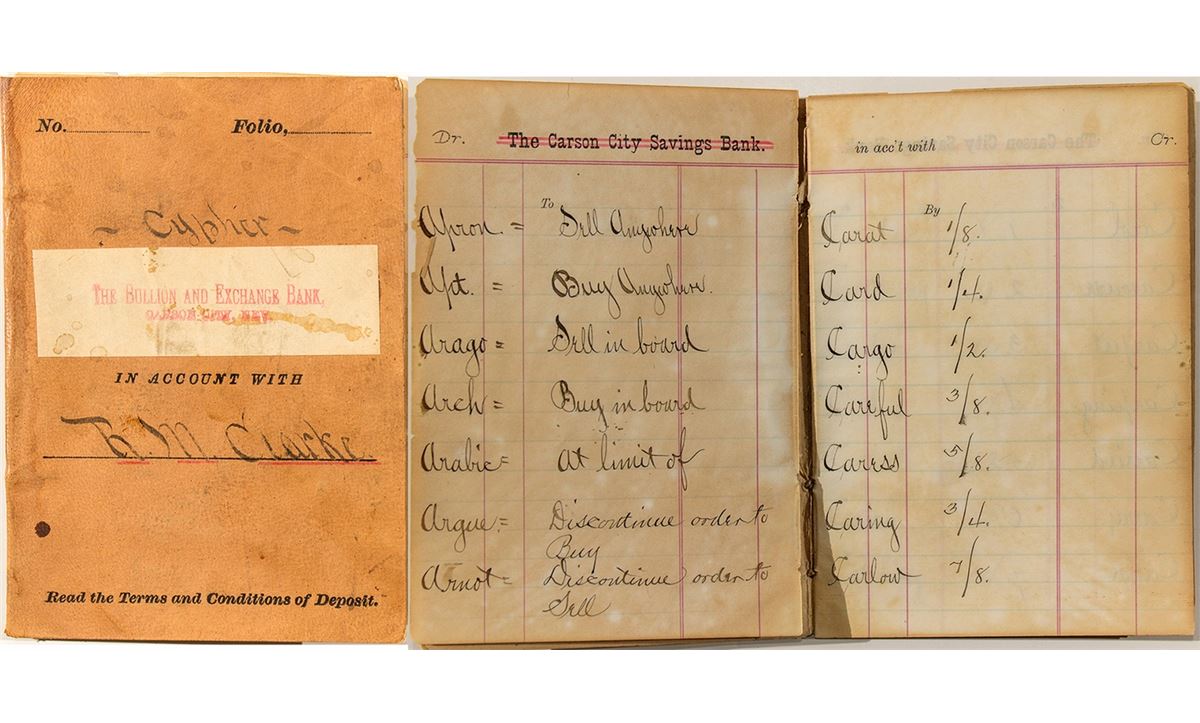 No. Folio,
~ Cypher ~
THE BULLION AND EXCHANGE BANK,
CARSON CITY, NEV.
IN ACCOUNT WITH
R. M. Clarke.
Read the Terms and Conditions of Deposit.
Dr. The Carson City Savings Bank.
To
Apron. = Sell Anywhere
Apt. = Buy Anywhere.
Arago = Sell in board
Arch = Buy in board
Arabic = At limit of
Argue = Discontinue order to
Buy
Arnot = Discontinue order to
Sell
in acc't with Cr.
By
Carat 1/8.
Card 1/4.
Cargo 1/2.
Careful 3/8.
Caress 5/8.
Caring 3/4.
Carlow 7/8.